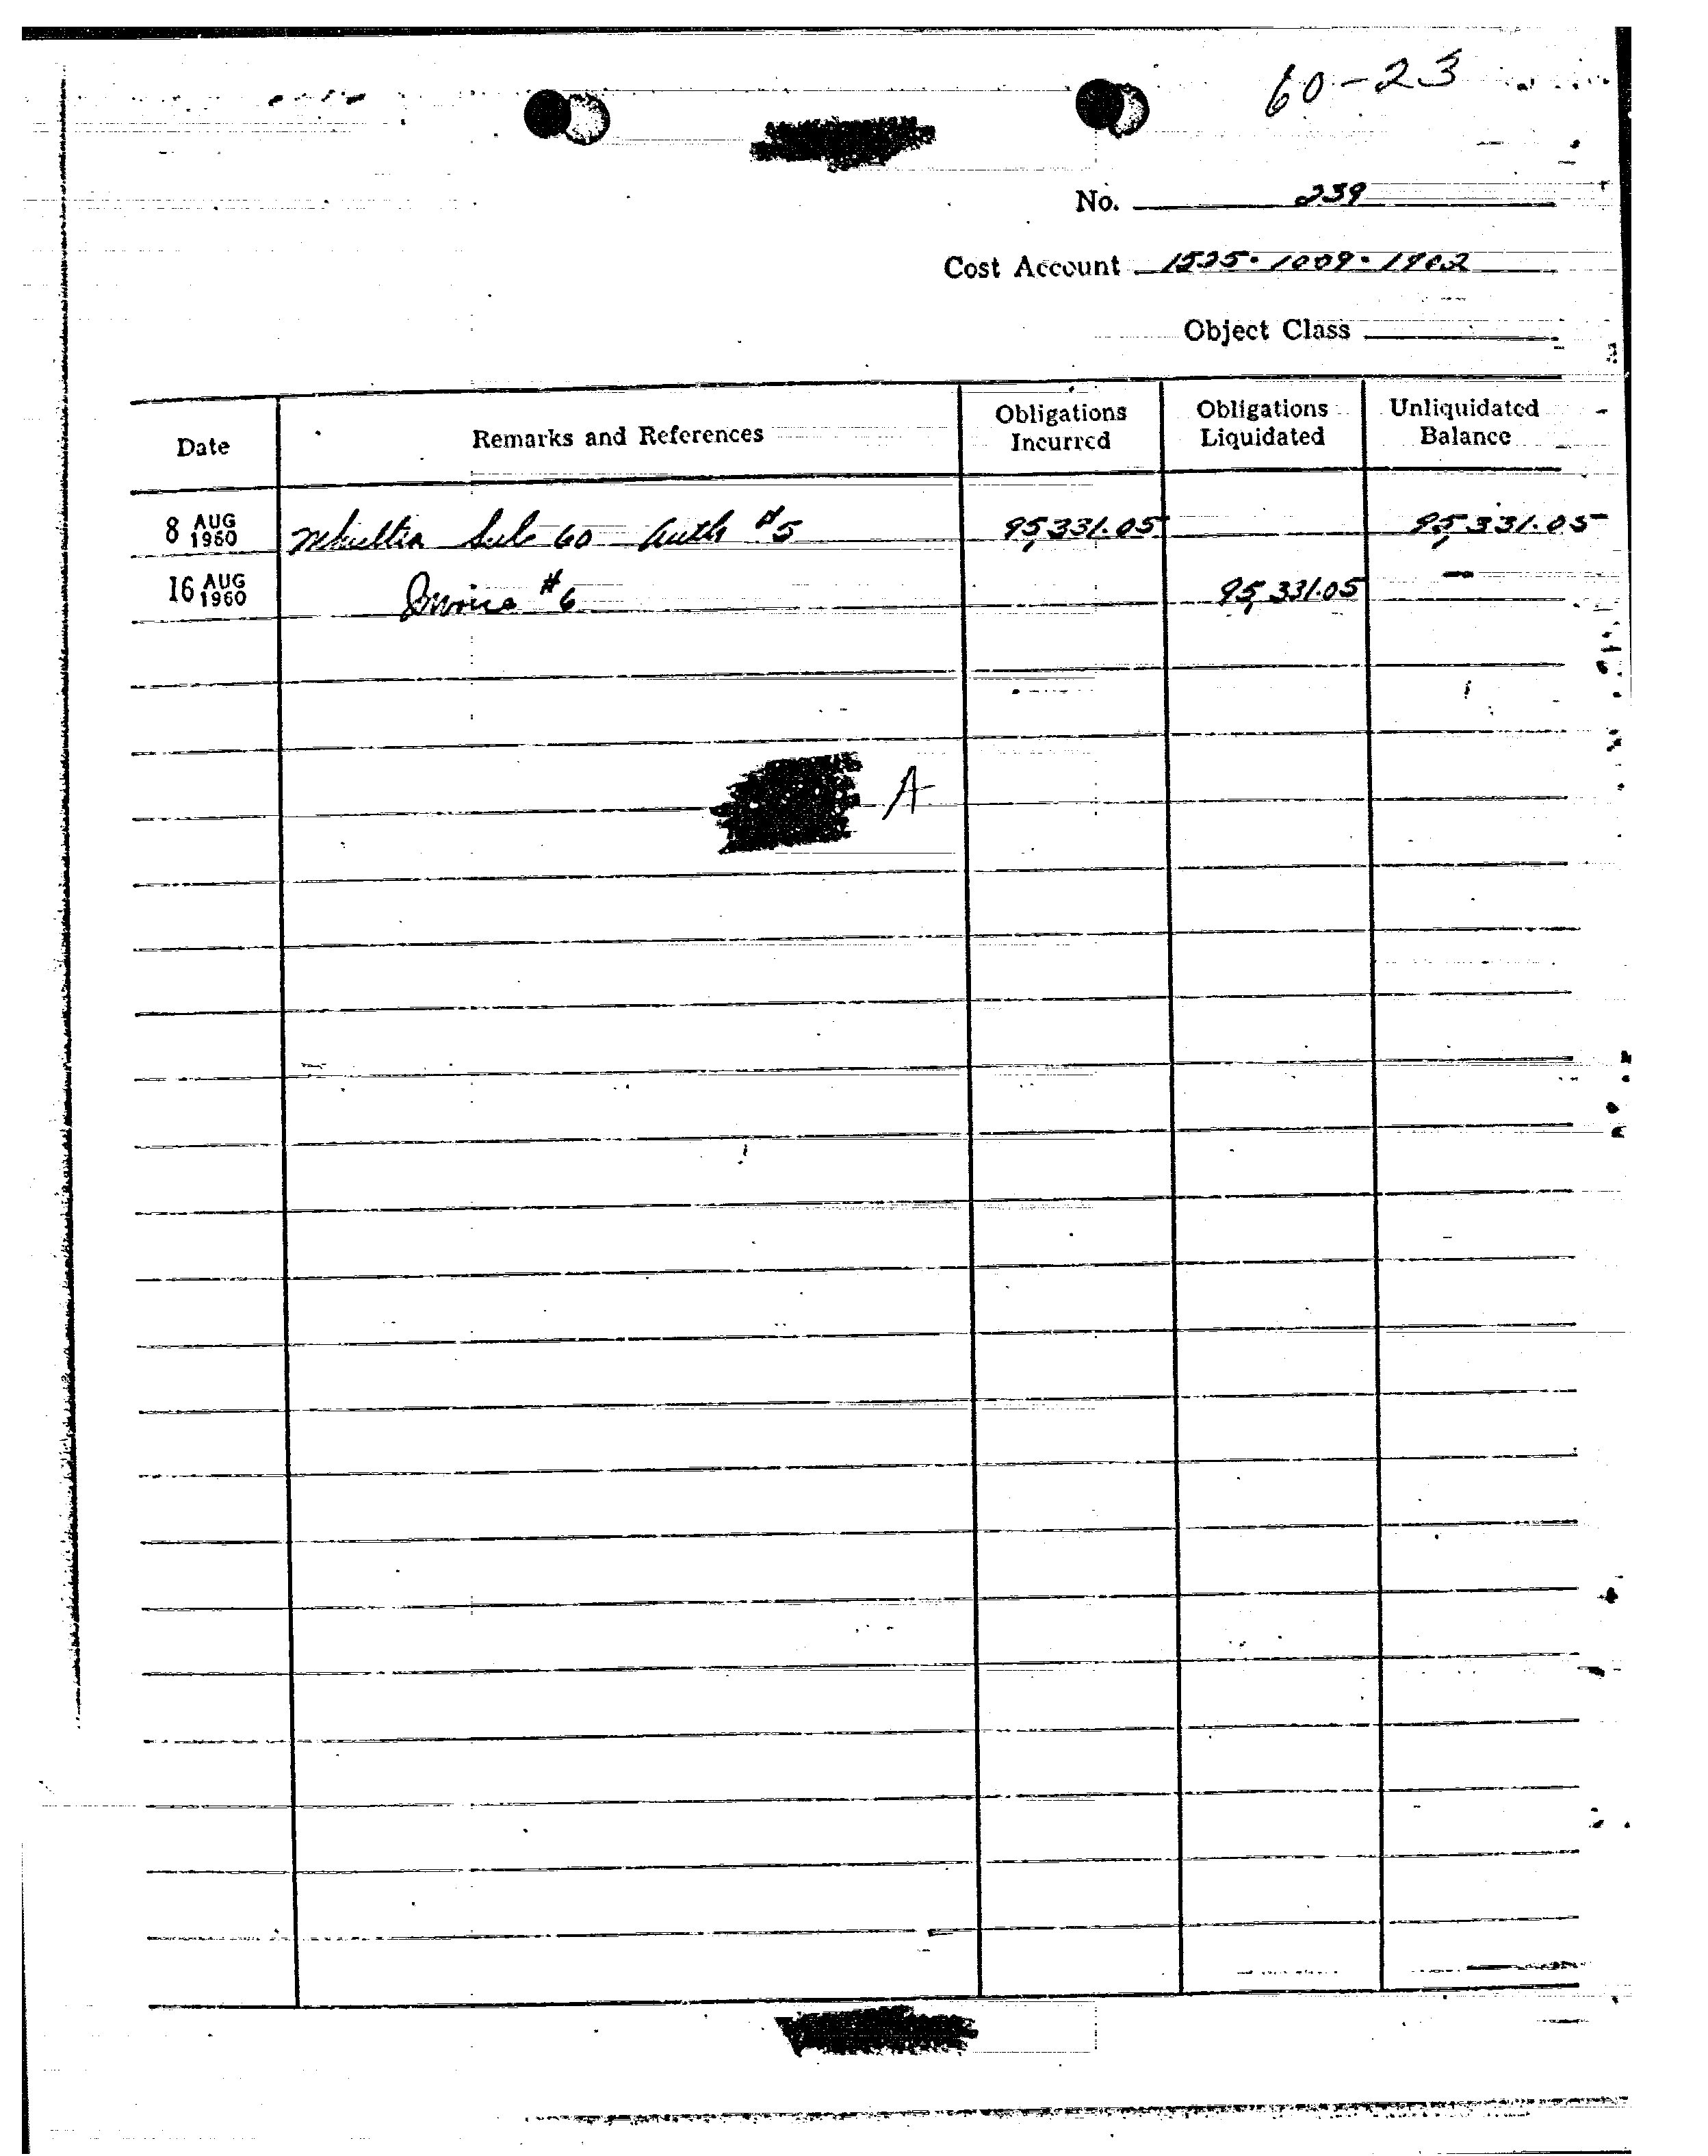 60-23
No. 239
Cost Account 1525-1009-1902
Object Class
Date Remarks and References Obligations Incurred Obligations Liquidated Unliquidated Balance
8 AUG 1960 Mkultra Sub 60 Auth #5 95,331.05 95,331.05
16 AUG 1960 Invoice #6 95,331.05 —
A